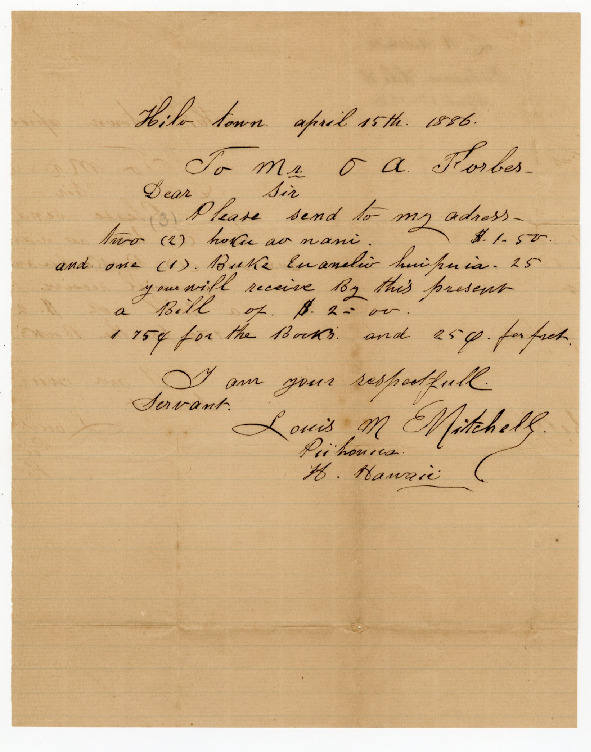 Hilo town april 15th. 1886.
To Mr. O A. Forbes.
Dear Sir
Please send to my adress
two (2) hoku ao nani. $.1.50.
and one (1). Buke Euanelio huipuia. 25
you will receive By this present
a Bill of $. 2=00.
1 75¢ for the Books. and 25¢. for fret.
I am your respectfull
Servant.
Louis M Mitchell.
Piihonua.
H. Hawaii